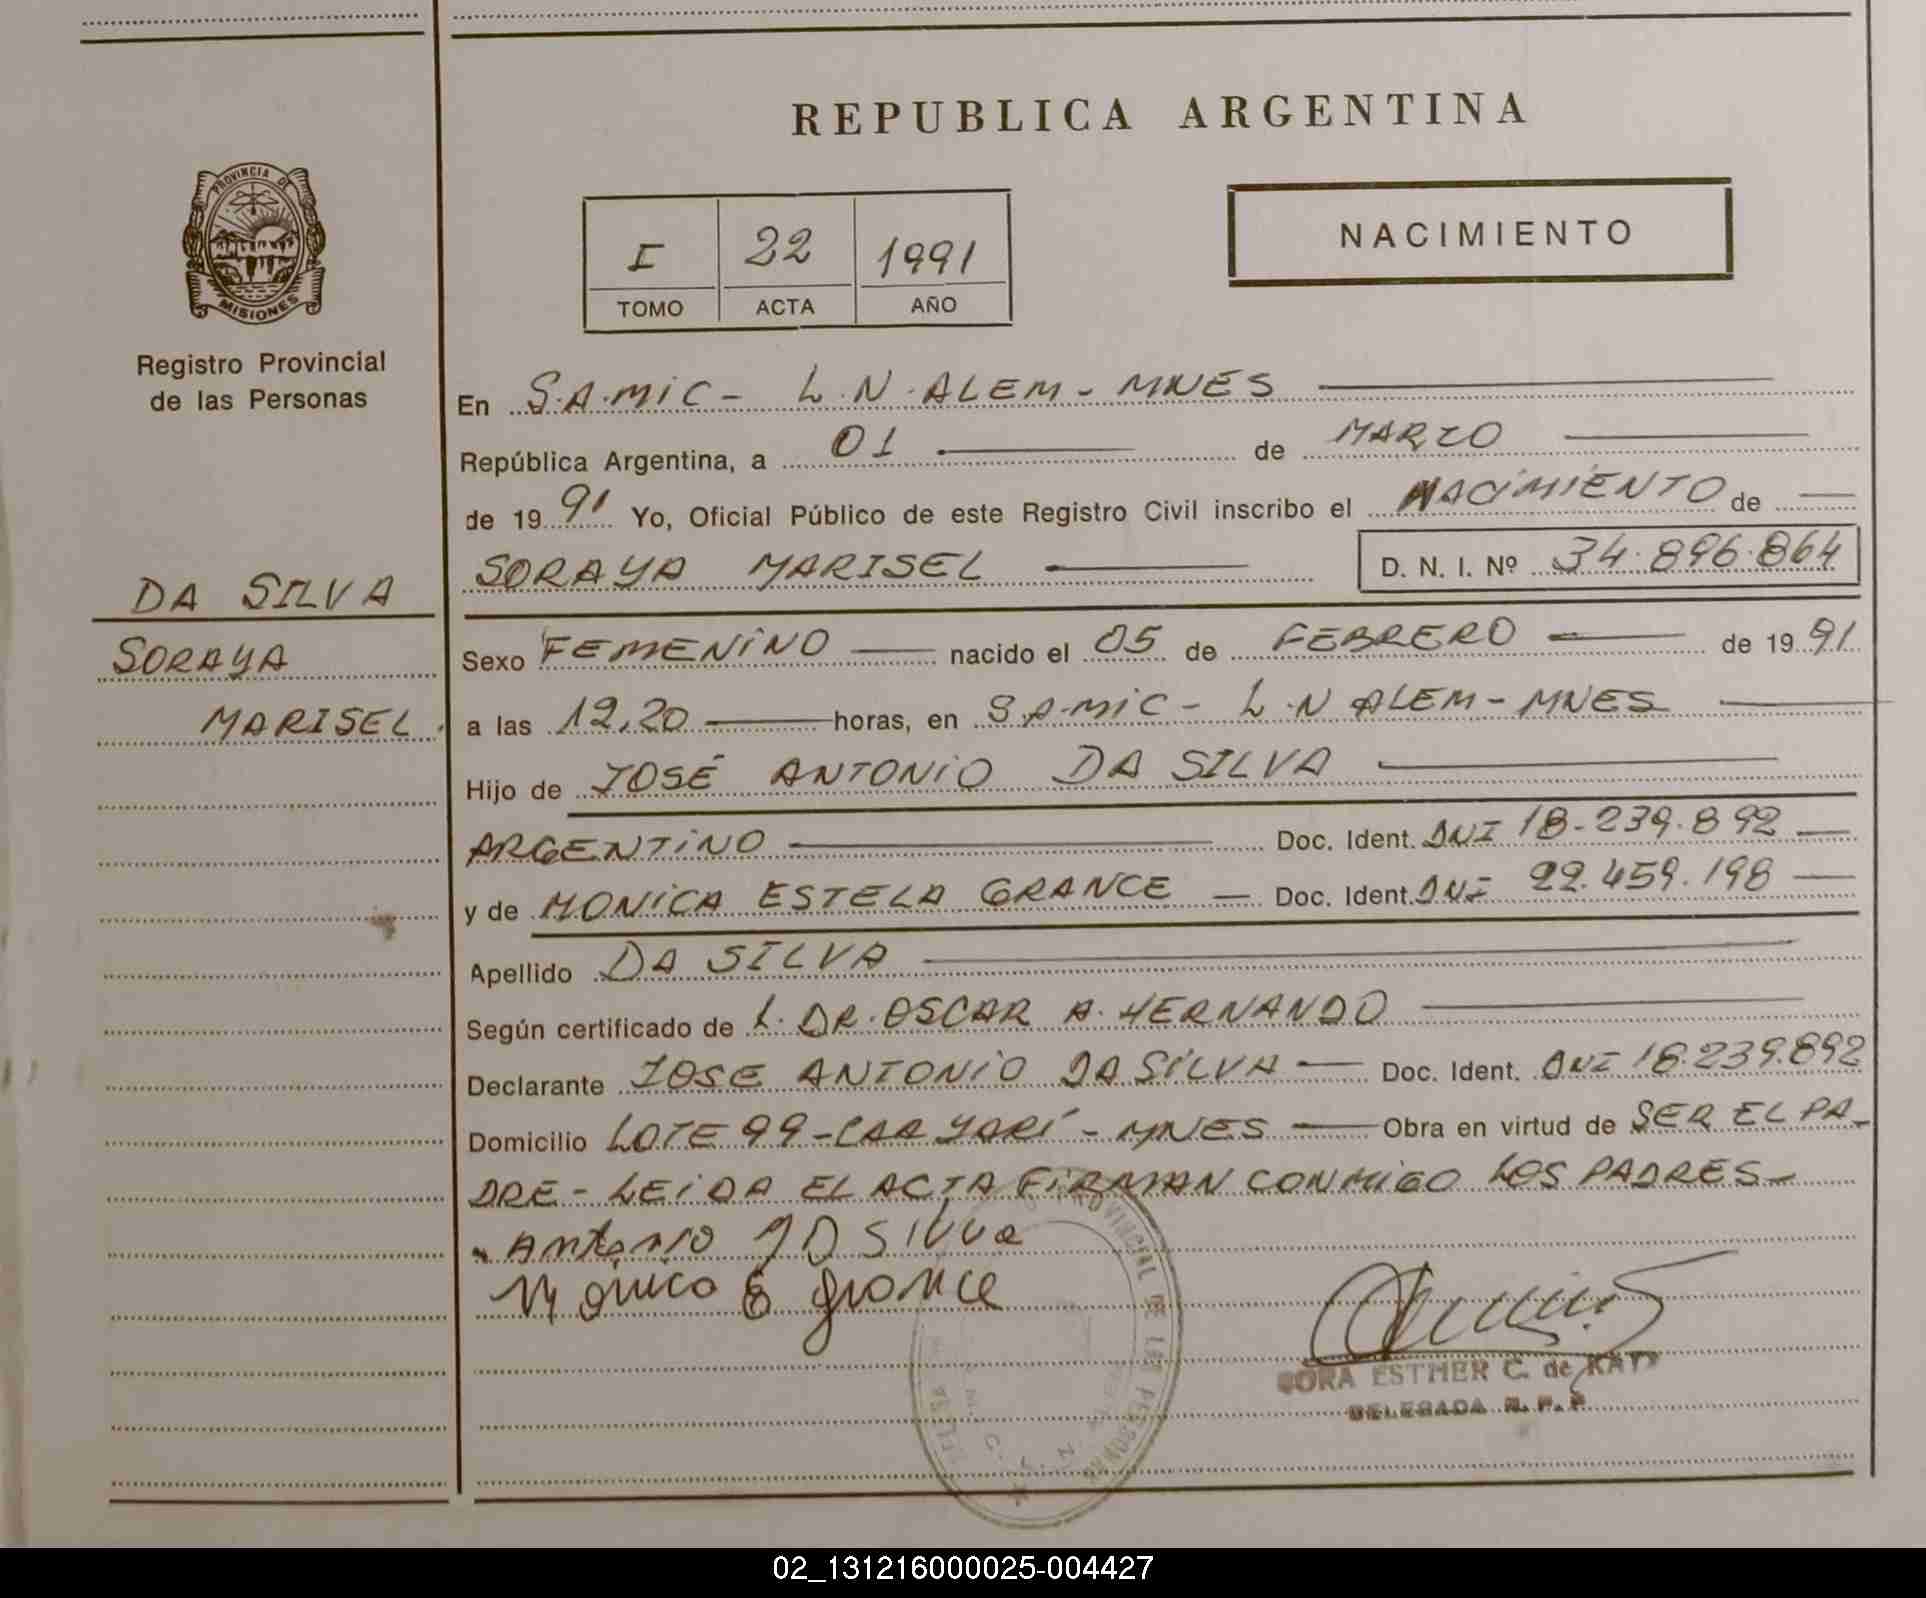 REPUBLICA ARGENTINA
PROVINCIA DE
MISIONES
Registro Provincial
de las Personas
I 22 1991
TOMO ACTA AÑO
NACIMIENTO
En S.A.MIC- L.N.ALEM- MNES
República Argentina, a 01 de MARZO
de 1991 Yo, Oficial Público de este Registro Civil inscribo el NACIMIENTO de
SORAYA MARISEL D. N. I. Nº 34.896.864
DA SILVA
SORAYA
MARISEL.
Sexo FEMENINO nacido el 05 de FEBRERO de 1991
a las 12,20 horas, en S.A.MIC- L.N ALEM- MNES
Hijo de JOSÉ ANTONIO DA SILVA
ARGENTINO Doc. Ident. DNI 18.239.892
y de MONICA ESTELA GRANCE Doc. Ident. DNI 22.459.198
Apellido DA SILVA
Según certificado de L. DR. OSCAR A. HERNANDO
Declarante JOSE ANTONIO DA SILVA Doc. Ident. DNI 18.239.892
Domicilio LOTE 99-CAA YARÍ - MNES Obra en virtud de SER EL PA-
DRE- LEIDA EL ACTA FIRMAN CONMIGO LOS PADRES-
Antonio J D Silva
Monica E grance
PROVINCIAL DE LAS PERSONAS
ESTHER C. de
DELEGADA R. P. P.
02_131216000025-004427